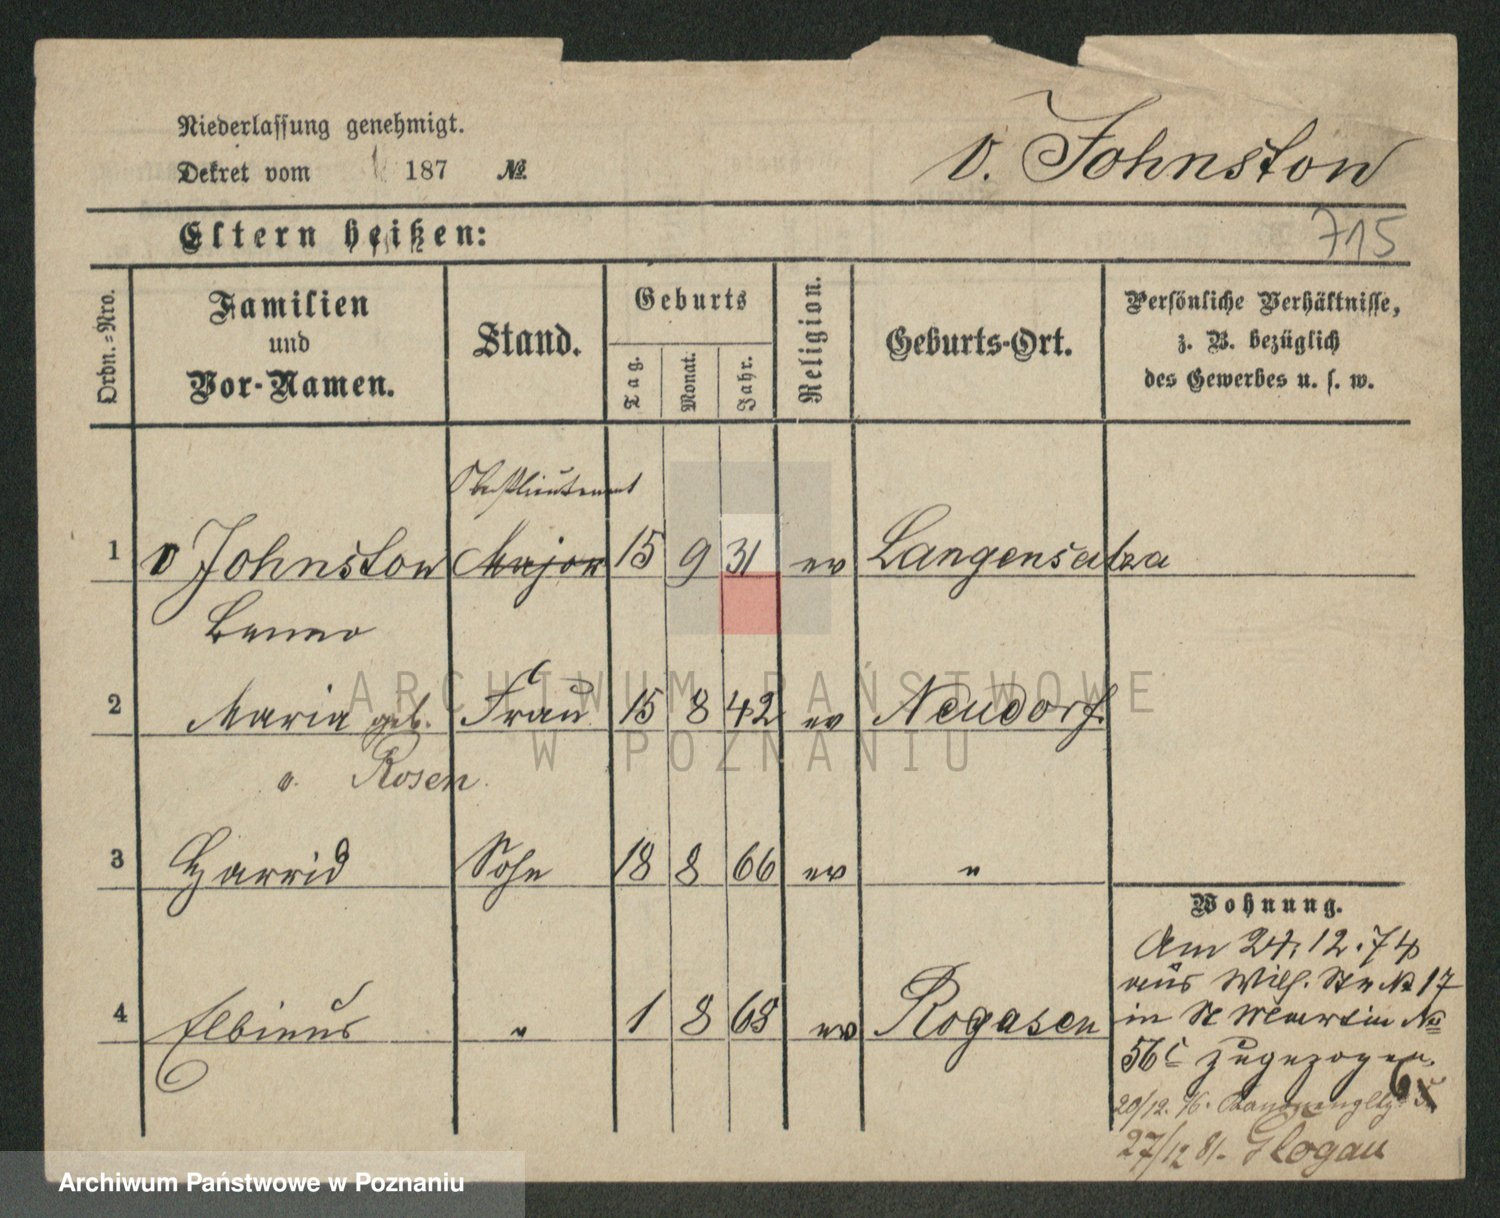 Niederlassung genehmigt.
Dekret vom 187 №
v. Johnston
Eltern heißen:
715
Ordn.-Nro.
Familien und Vor-Namen.
Stand.
Geburts
Tag. Monat. Jahr.
Religion.
Geburts-Ort.
Persönliche Verhältnisse, z. B. bezüglich des Gewerbes u. s. w.
Oberstlieutenant
1 v Johnston Major 15 9 31 ev Langensalza
Benno
2 Maria geb. Frau 15 8 42 ev Neudorf.
v. Rosen.
3 Harrid Sohn 18 8 66 ev "
4 Elbinus " 1 8 68 ev Rogasen
Wohnung.
Am 24. 12. 74
aus Wilh. Str № 17
in St Martin №
56c zugezogen.
20/12. 76.
27/12 81. Glogau
ARCHIWUM PAŃSTWOWE
W POZNANIU
Archiwum Państwowe w Poznaniu